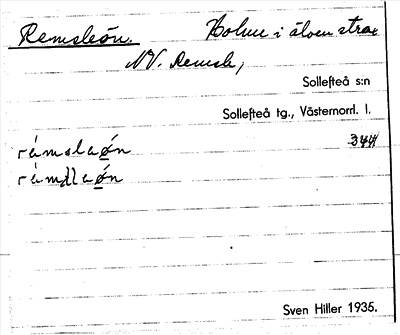 Remsleön. Holme i älven strax
NV. Remsle,
Sollefteå s:n
Sollefteå tg., Västernorrl. l.
344
rámslaǿn
rámʃlaǿn
Sven Hiller 1935.